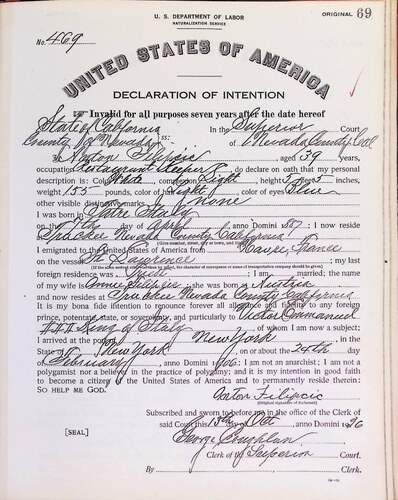 U. S. DEPARTMENT OF LABOR
NATURALIZATION SERVICE
ORIGINAL 69
No. 469
UNITED STATES OF AMERICA
DECLARATION OF INTENTION
Invalid for all purposes seven years after the date hereof
State of California
In the Superior Court
County of Nevada ss:
of Nevada County, Cal
I, Anton Filipcic, aged 39 years,
occupation Restaurant Keeper, do declare on oath that my personal
description is: Color White, complexion Light, height 5 feet inches,
weight 155 pounds, color of hair Light, color of eyes Blue
other visible distinctive marks none
I was born in Italy
on the day of April, anno Domini 1887; I now reside
at Truckee Nevada County California
(Give number, street, city or town, and State.)
I emigrated to the United States of America from Havre, France
on the vessel St Lawrence; my last
(If the alien arrived otherwise than by vessel, the character of conveyance or name of transportation company should be given.)
foreign residence was; I am married; the name
of my wife is Annie Filipcic; she was born at Austria
and now resides at Truckee Nevada County California
It is my bona fide intention to renounce forever all allegiance and fidelity to any foreign
prince, potentate, state, or sovereignty, and particularly to Victor Emmanuel
III King of Italy, of whom I am now a subject;
I arrived at the port of New York, in the
State of New York, on or about the 24th day
of February, anno Domini 1906; I am not an anarchist; I am not a
polygamist nor a believer in the practice of polygamy; and it is my intention in good faith
to become a citizen of the United States of America and to permanently reside therein:
SO HELP ME GOD.
Anton Filipcic
(Original signature of declarant)
Subscribed and sworn to before me in the office of the Clerk of
said Court this 13th day of Oct, anno Domini 1926
[SEAL]
George Coughlan
Clerk of the Superior Court.
By, Clerk.